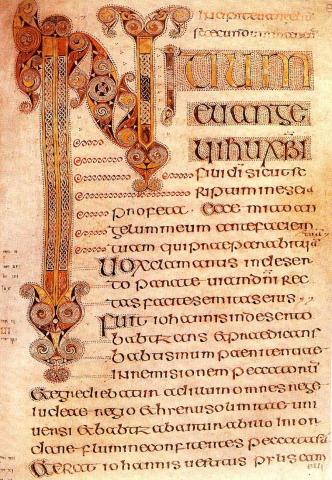 INITIUM
EUANGE
LII IHU XPI
filii di sicut sc
riptum in esaia
profeta Ecce mitto an
gelum meum ante faciem
tuam qui praeparabit uiam
Uox clamantis in deser
to parate uiam dni rec
tas facite semitas eius
Fuit iohannis in deserto
babtizans et praedicans
babtismum paenitentiae
in remisionem peccatorum
Et egrediebatur ad illum omnes
iudeae regio et hierusolimitae uni
uersi et babtizabantur ab illo in ior
dane flumine confitentes peccata sua
Et erat iohannis uestitus pilis cam
eli